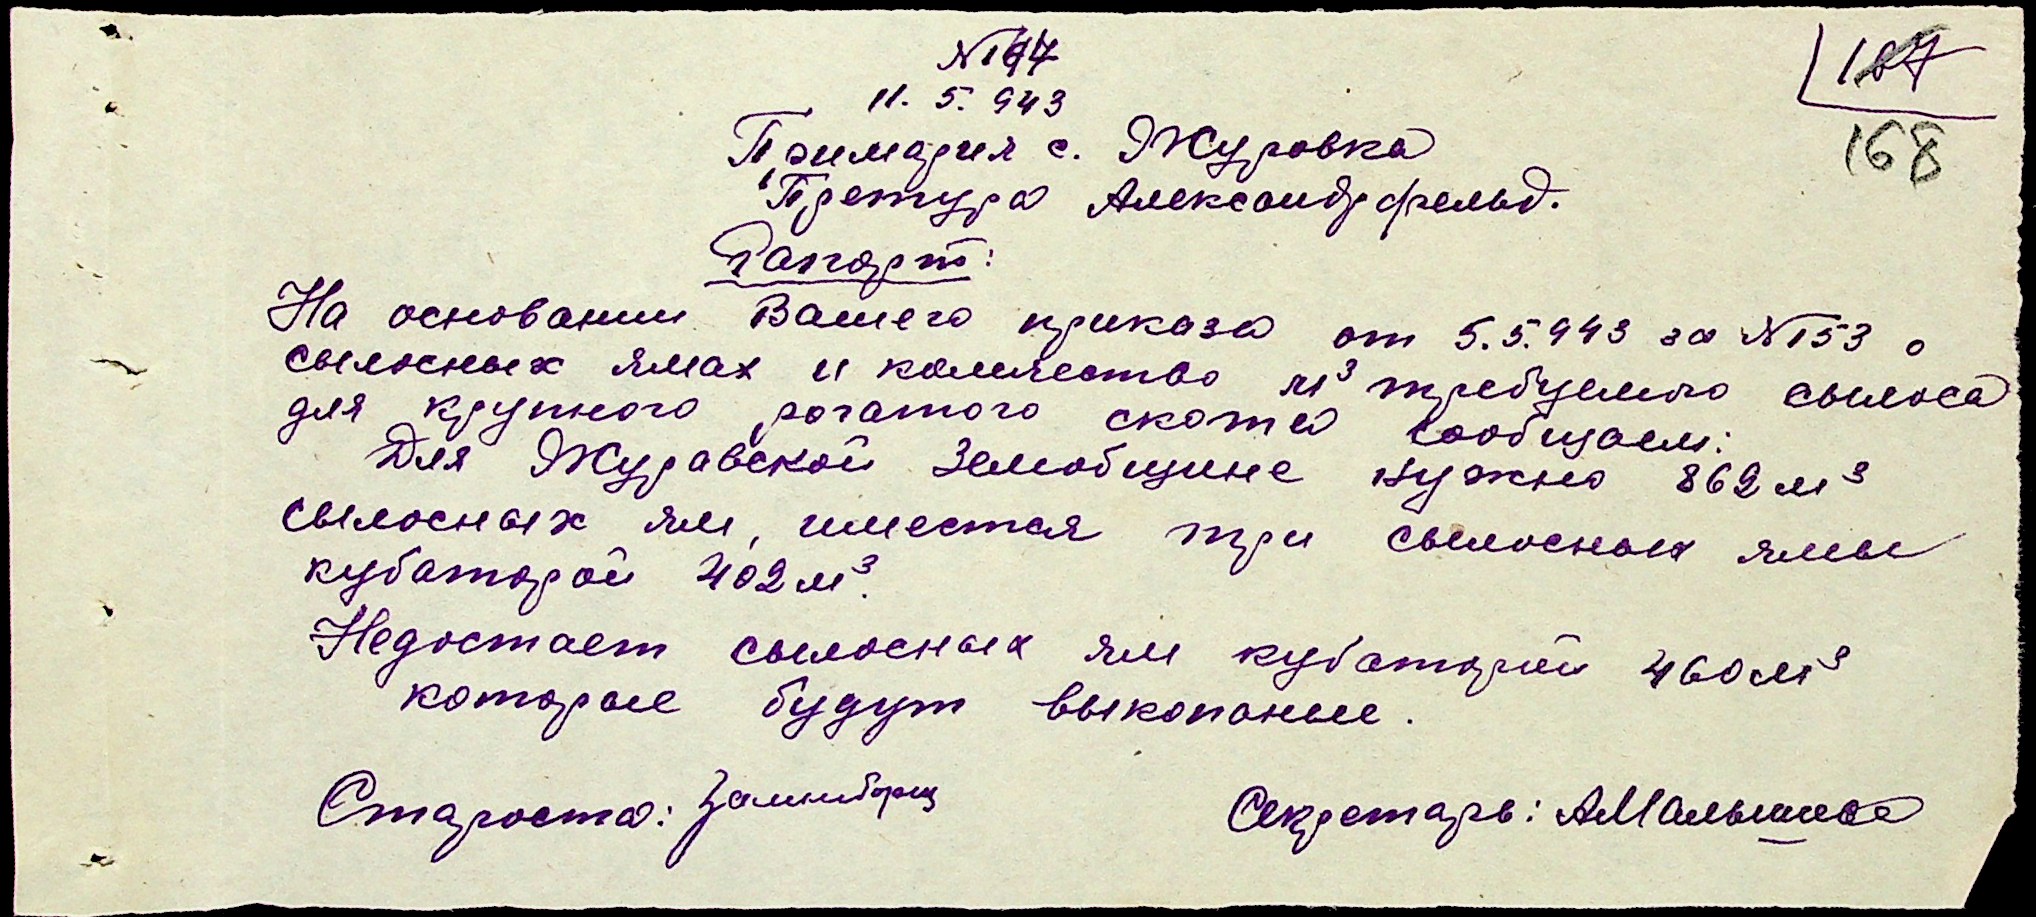 11.5.943
168
Примария с. Журовка
Претура Александрфельд.
Рапорт:
На основании Вашего приказа от 5.5.943 за №153 о
сылосных ямах и количество м³ требуемого сылоса
для крупного рогатого скота сообщаем:
Для Журавской Земобщине нужно 862 м³
сылосных ям, имеется три сылосных ямы
кубаторой 402 м³.
Недостает сылосных ям кубаторой 460 м³
которые будут выкопаные.
Староста:
Секретарь: